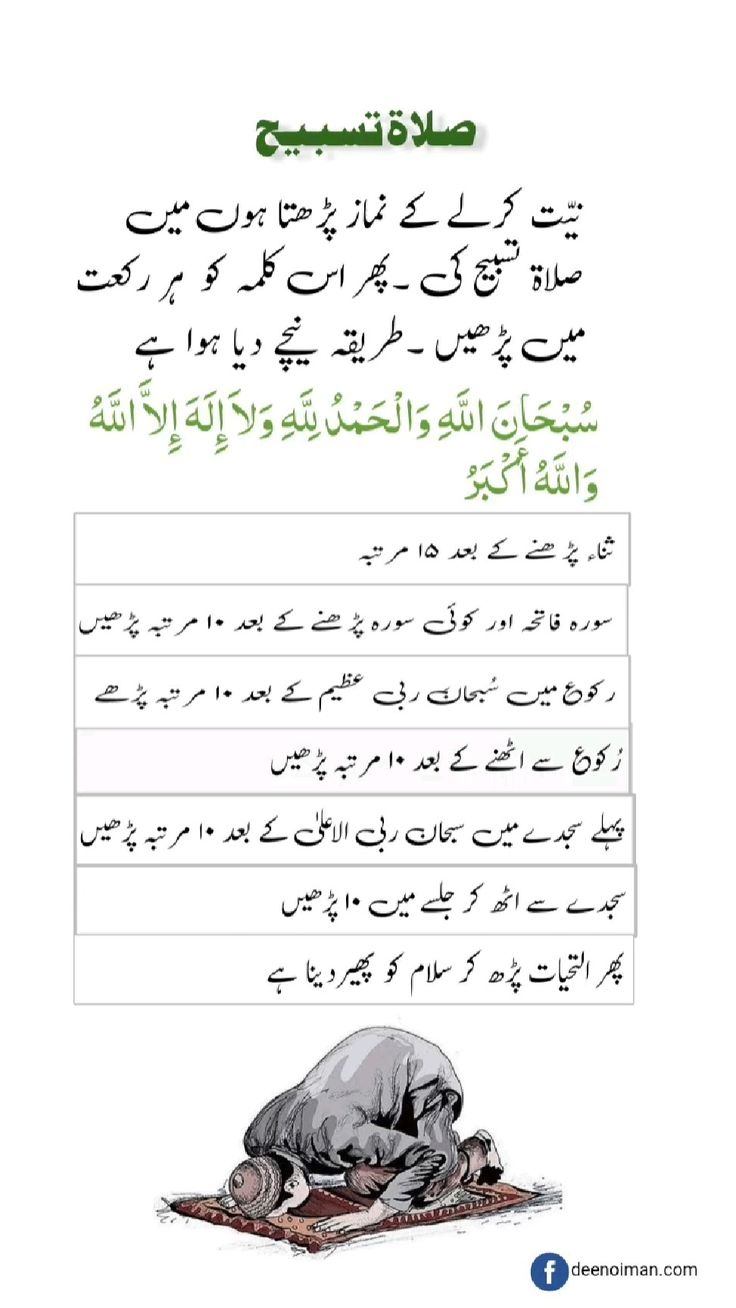 صلاة تسبيح
نیّت کرلے کے نماز پڑھتا ہوں میں
صلاۃ تسبیح کی ۔ پھر اس کلمہ کو ہر رکعت
میں پڑھیں ۔ طریقہ نیچے دیا ہوا ہے
سُبْحَانَ اللَّهِ وَالْحَمْدُ لِلَّهِ وَلاَ إِلَهَ إِلاَّ اللَّهُ
وَاللَّهُ أَكْبَرُ
ثناء پڑھنے کے بعد ۱۵ مرتبہ
سورہ فاتحہ اور کوئی سورہ پڑھنے کے بعد ۱۰ مرتبہ پڑھیں
رکوع میں سُبحان ربی عظیم کے بعد ۱۰ مرتبہ پڑھے
رُکوع سے اٹھنے کے بعد ۱۰ مرتبہ پڑھیں
پہلے سجدے میں سبحان ربی الاعلیٰ کے بعد ۱۰ مرتبہ پڑھیں
سجدے سے اٹھ کر جلسے میں ۱۰ پڑھیں
پھر التحیات پڑھ کر سلام کو پھیر دینا ہے
deenoiman.com